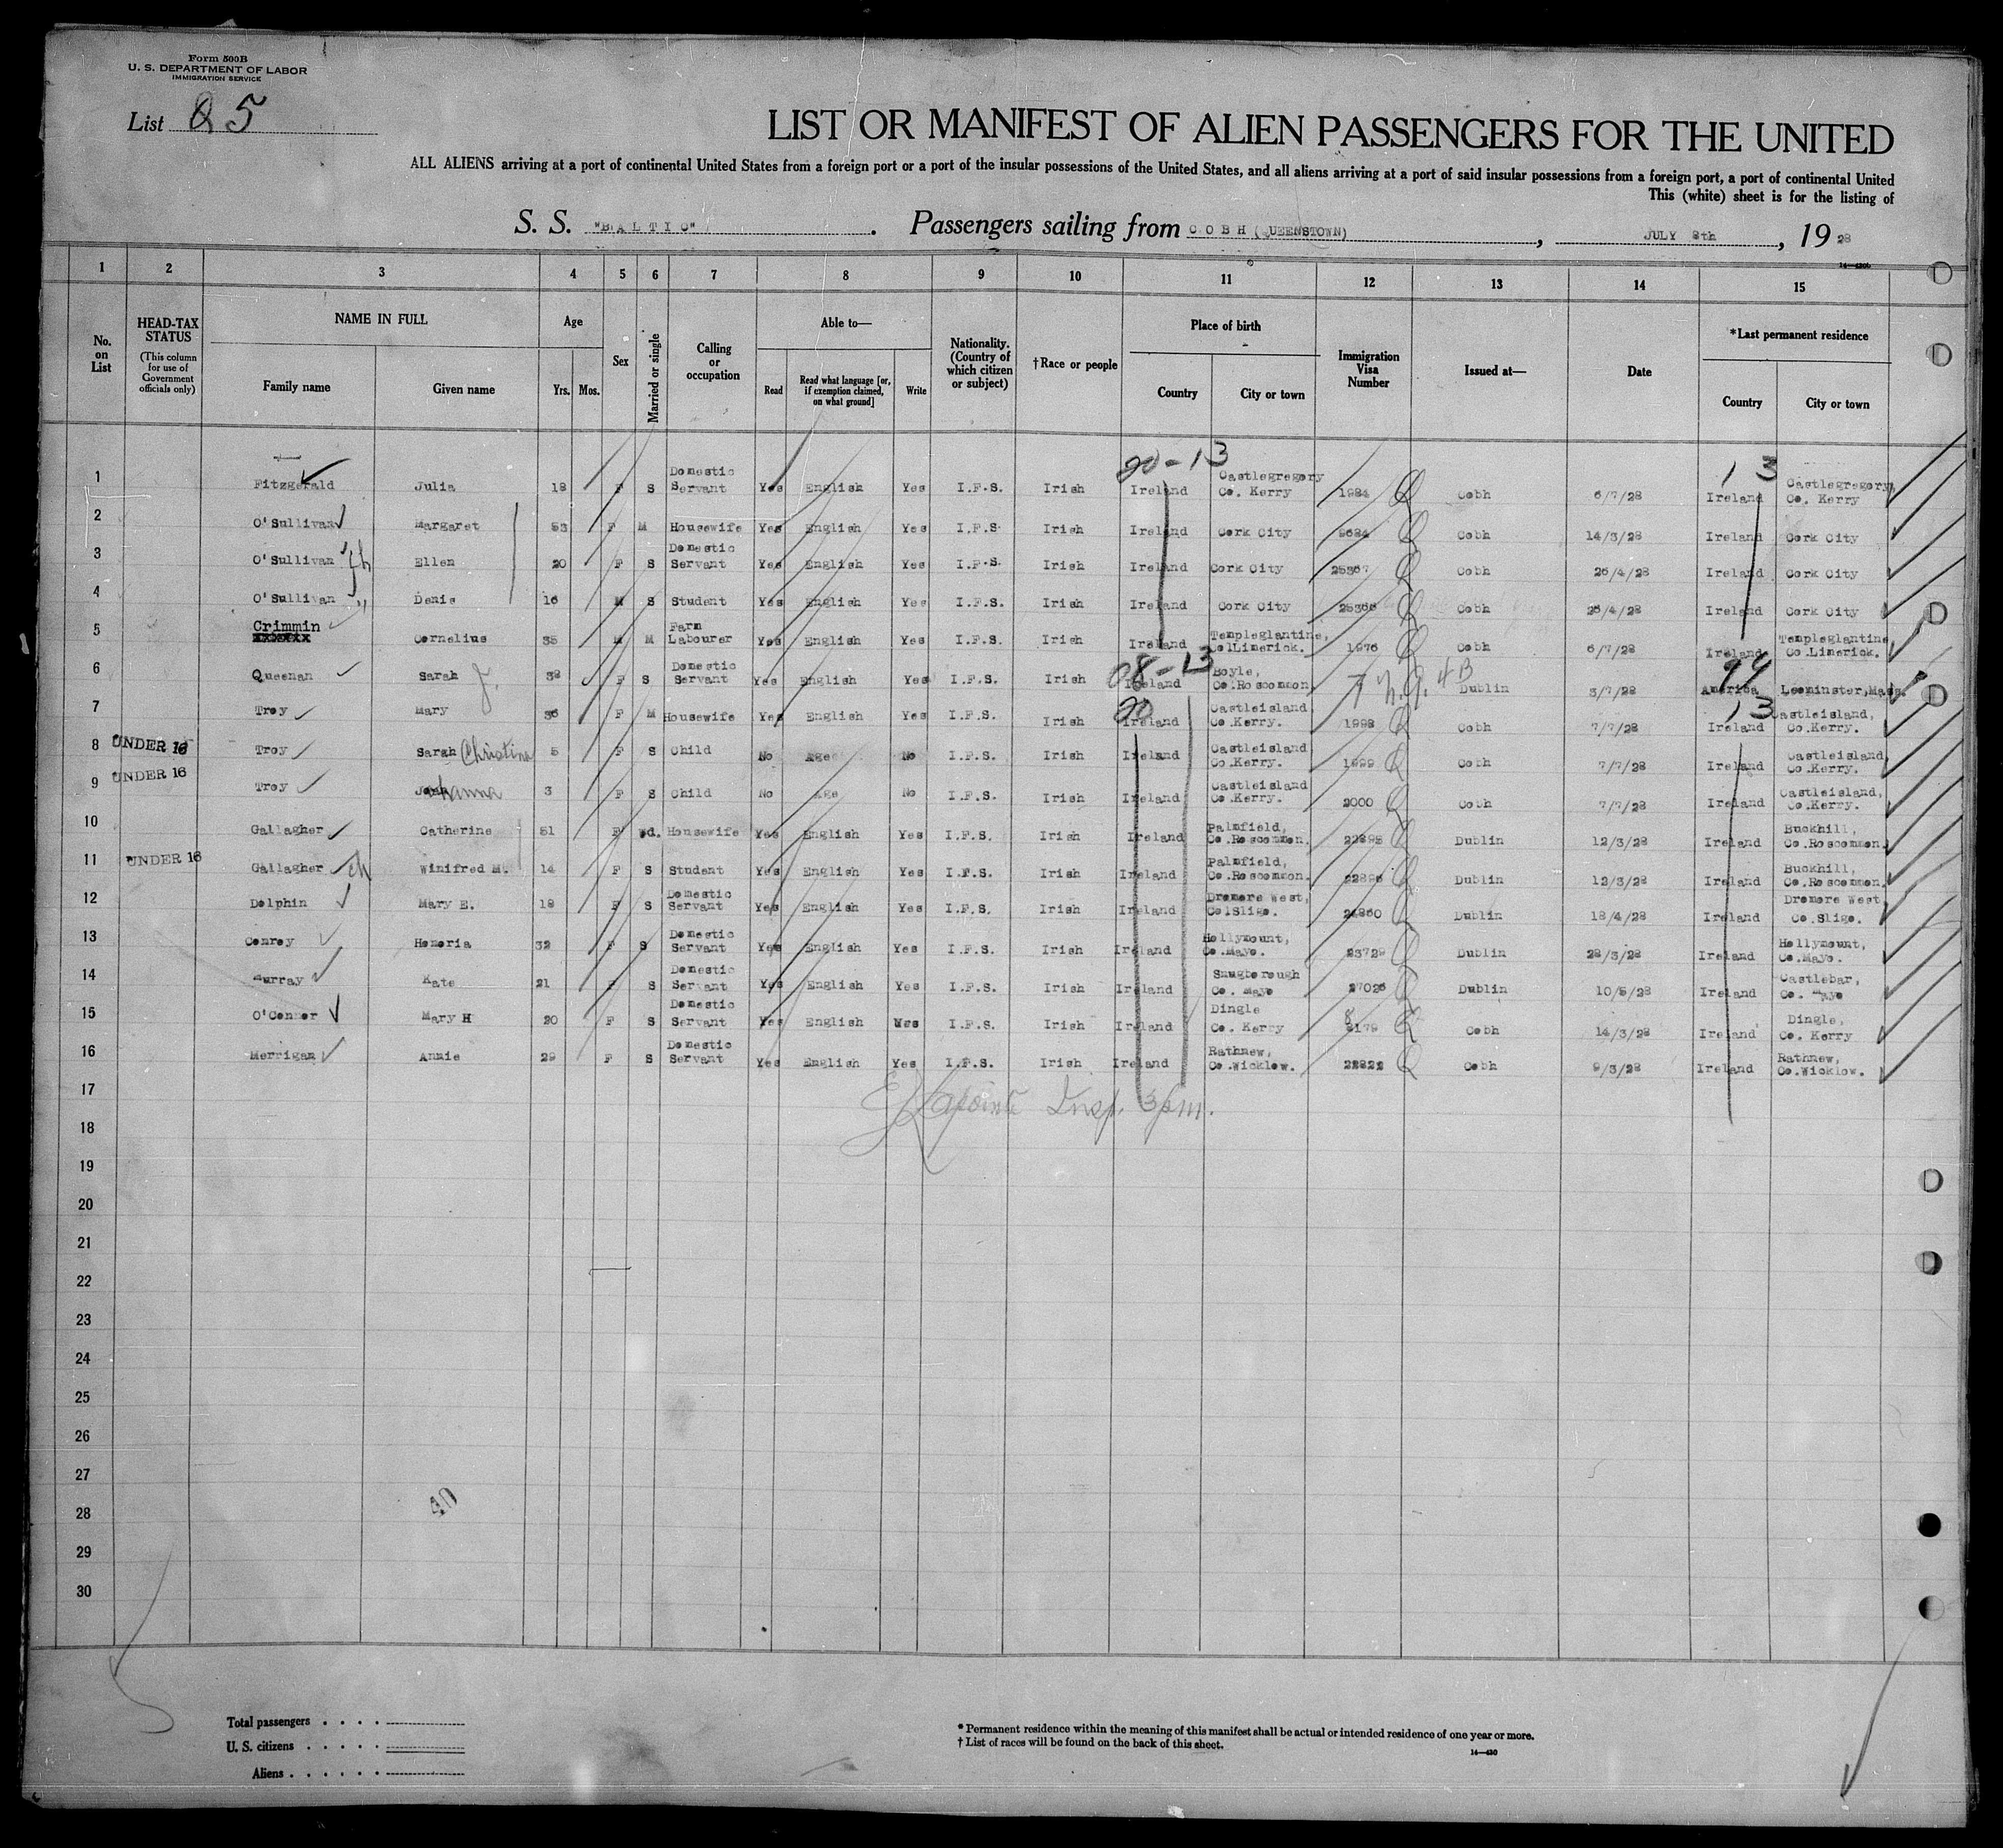 Form 500B
U. S. DEPARTMENT OF LABOR
IMMIGRATION SERVICE
List 25
LIST OR MANIFEST OF ALIEN PASSENGERS FOR THE UNITED
ALL ALIENS arriving at a port of continental United States from a foreign port or a port of the insular possessions of the United States, and all aliens arriving at a port of said insular possessions from a foreign port, a port of continental United
This (white) sheet is for the listing of
S. S. "BALTIC". Passengers sailing from COBH (QUEENSTOWN), JULY 8th, 1928
14—430b
1 2 3 4 5 6 7 8 9 10 11 12 13 14 15
No. on List
HEAD-TAX STATUS (This column for use of Government officials only)
NAME IN FULL Family name Given name
Age Yrs. Mos.
Sex
Married or single
Calling or occupation
Able to— Read Read what language [or, if exemption claimed, on what ground] Write
Nationality. (Country of which citizen or subject)
†Race or people
Place of birth Country City or town
Immigration Visa Number
Issued at—
Date
*Last permanent residence Country City or town
20-13 13
1 Fitzgerald Julia 18 F S Domestic Servant Yes English Yes I.F.S. Irish Ireland Castlegregory Co. Kerry 1984 Cobh 6/7/28 Ireland Castlegregory, Co. Kerry
2 O'Sullivan Margaret 53 F M Housewife Yes English Yes I.F.S. Irish Ireland Cork City Cobh 14/3/28 Ireland Cork City
3 O'Sullivan Ellen 20 F S Domestic Servant Yes English Yes I.F.S. Irish Ireland Cork City 25367 Cobh 26/4/28 Ireland Cork City
4 O'Sullivan Denis 16 M S Student Yes English Yes I.F.S. Irish Ireland Cork City Cobh 26/4/28 Ireland Cork City
5 Crimmin Cornelius 35 M M Farm Labourer Yes English Yes I.F.S. Irish Ireland Templeglantine, Co.Limerick. 1976 Cobh 6/7/28 Ireland Templeglantine Co.Limerick.
08-13 99
6 Queenan Sarah J. 38 F S Domestic Servant Yes English Yes I.F.S. Irish Ireland Boyle, Co.Roscommon 4B Dublin 3/7/28 America Leominster,Mass.
20 13
7 Troy Mary 36 F M Housewife Yes English Yes I.F.S. Irish Ireland Castleisland, Co.Kerry. 1998 Cobh 7/7/28 Ireland Castleisland, Co.Kerry.
8 UNDER 16 Troy Sarah Christina 5 F S Child No Age No I.F.S. Irish Ireland Castleisland Co.Kerry. 1999 Cobh 7/7/28 Ireland Castleisland, Co.Kerry.
9 UNDER 16 Troy Johanna 3 F S Child No Age No I.F.S. Irish Ireland Castleisland Co.Kerry. 2000 Cobh 7/7/28 Ireland Castleisland, Co.Kerry.
10 Gallagher Catherine 51 F Wd. Housewife Yes English Yes I.F.S. Irish Ireland Palmfield, Co.Roscommon. 22895 Dublin 12/3/28 Ireland Buckhill, Co.Roscommon.
11 UNDER 16 Gallagher Winifred M. 14 F S Student Yes English Yes I.F.S. Irish Ireland Palmfield, Co.Roscommon. 22896 Dublin 12/3/28 Ireland Buckhill, Co.Roscommon.
12 Dolphin Mary E. 18 F S Domestic Servant Yes English Yes I.F.S. Irish Ireland Dromore West, Co.Sligo. 24860 Dublin 18/4/28 Ireland Dromore West Co.Sligo.
13 Conroy Honoria 32 F S Domestic Servant Yes English Yes I.F.S. Irish Ireland Hollymount, Co.Mayo. 23729 Dublin 28/3/28 Ireland Hollymount, Co.Mayo.
14 Murray Kate 21 F S Domestic Servant Yes English Yes I.F.S. Irish Ireland Snugborough Co. Mayo 27026 Dublin 10/5/28 Ireland Castlebar, Co. Mayo
15 O'Connor Mary H 20 F S Domestic Servant Yes English Yes I.F.S. Irish Ireland Dingle Co. Kerry Cobh 14/3/28 Ireland Dingle, Co. Kerry
16 Merrigan Annie 29 F S Domestic Servant Yes English Yes I.F.S. Irish Ireland Rathnew, Co.Wicklow. 22822 Cobh 9/3/28 Ireland Rathnew, Co.Wicklow.
17
Lapointe Insp. 3pm.
18
19
20
21
22
23
24
25
26
27
28
40
29
30
Total passengers
U. S. citizens
Aliens
* Permanent residence within the meaning of this manifest shall be actual or intended residence of one year or more.
† List of races will be found on the back of this sheet.
14—430